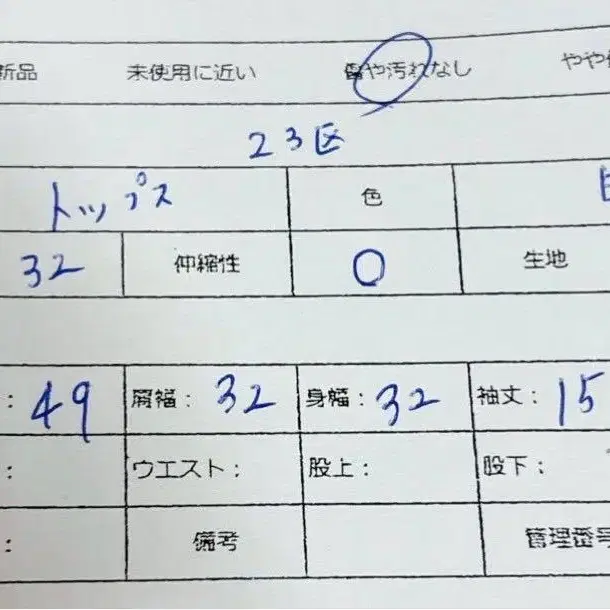 新品 未使用に近い 傷や汚れなし やや
23区
トップス 色
32 伸縮性 〇 生地
: 49 肩幅: 32 身幅: 32 袖丈: 15
: ウエスト: 股上: 股下:
: 備考 管理番号